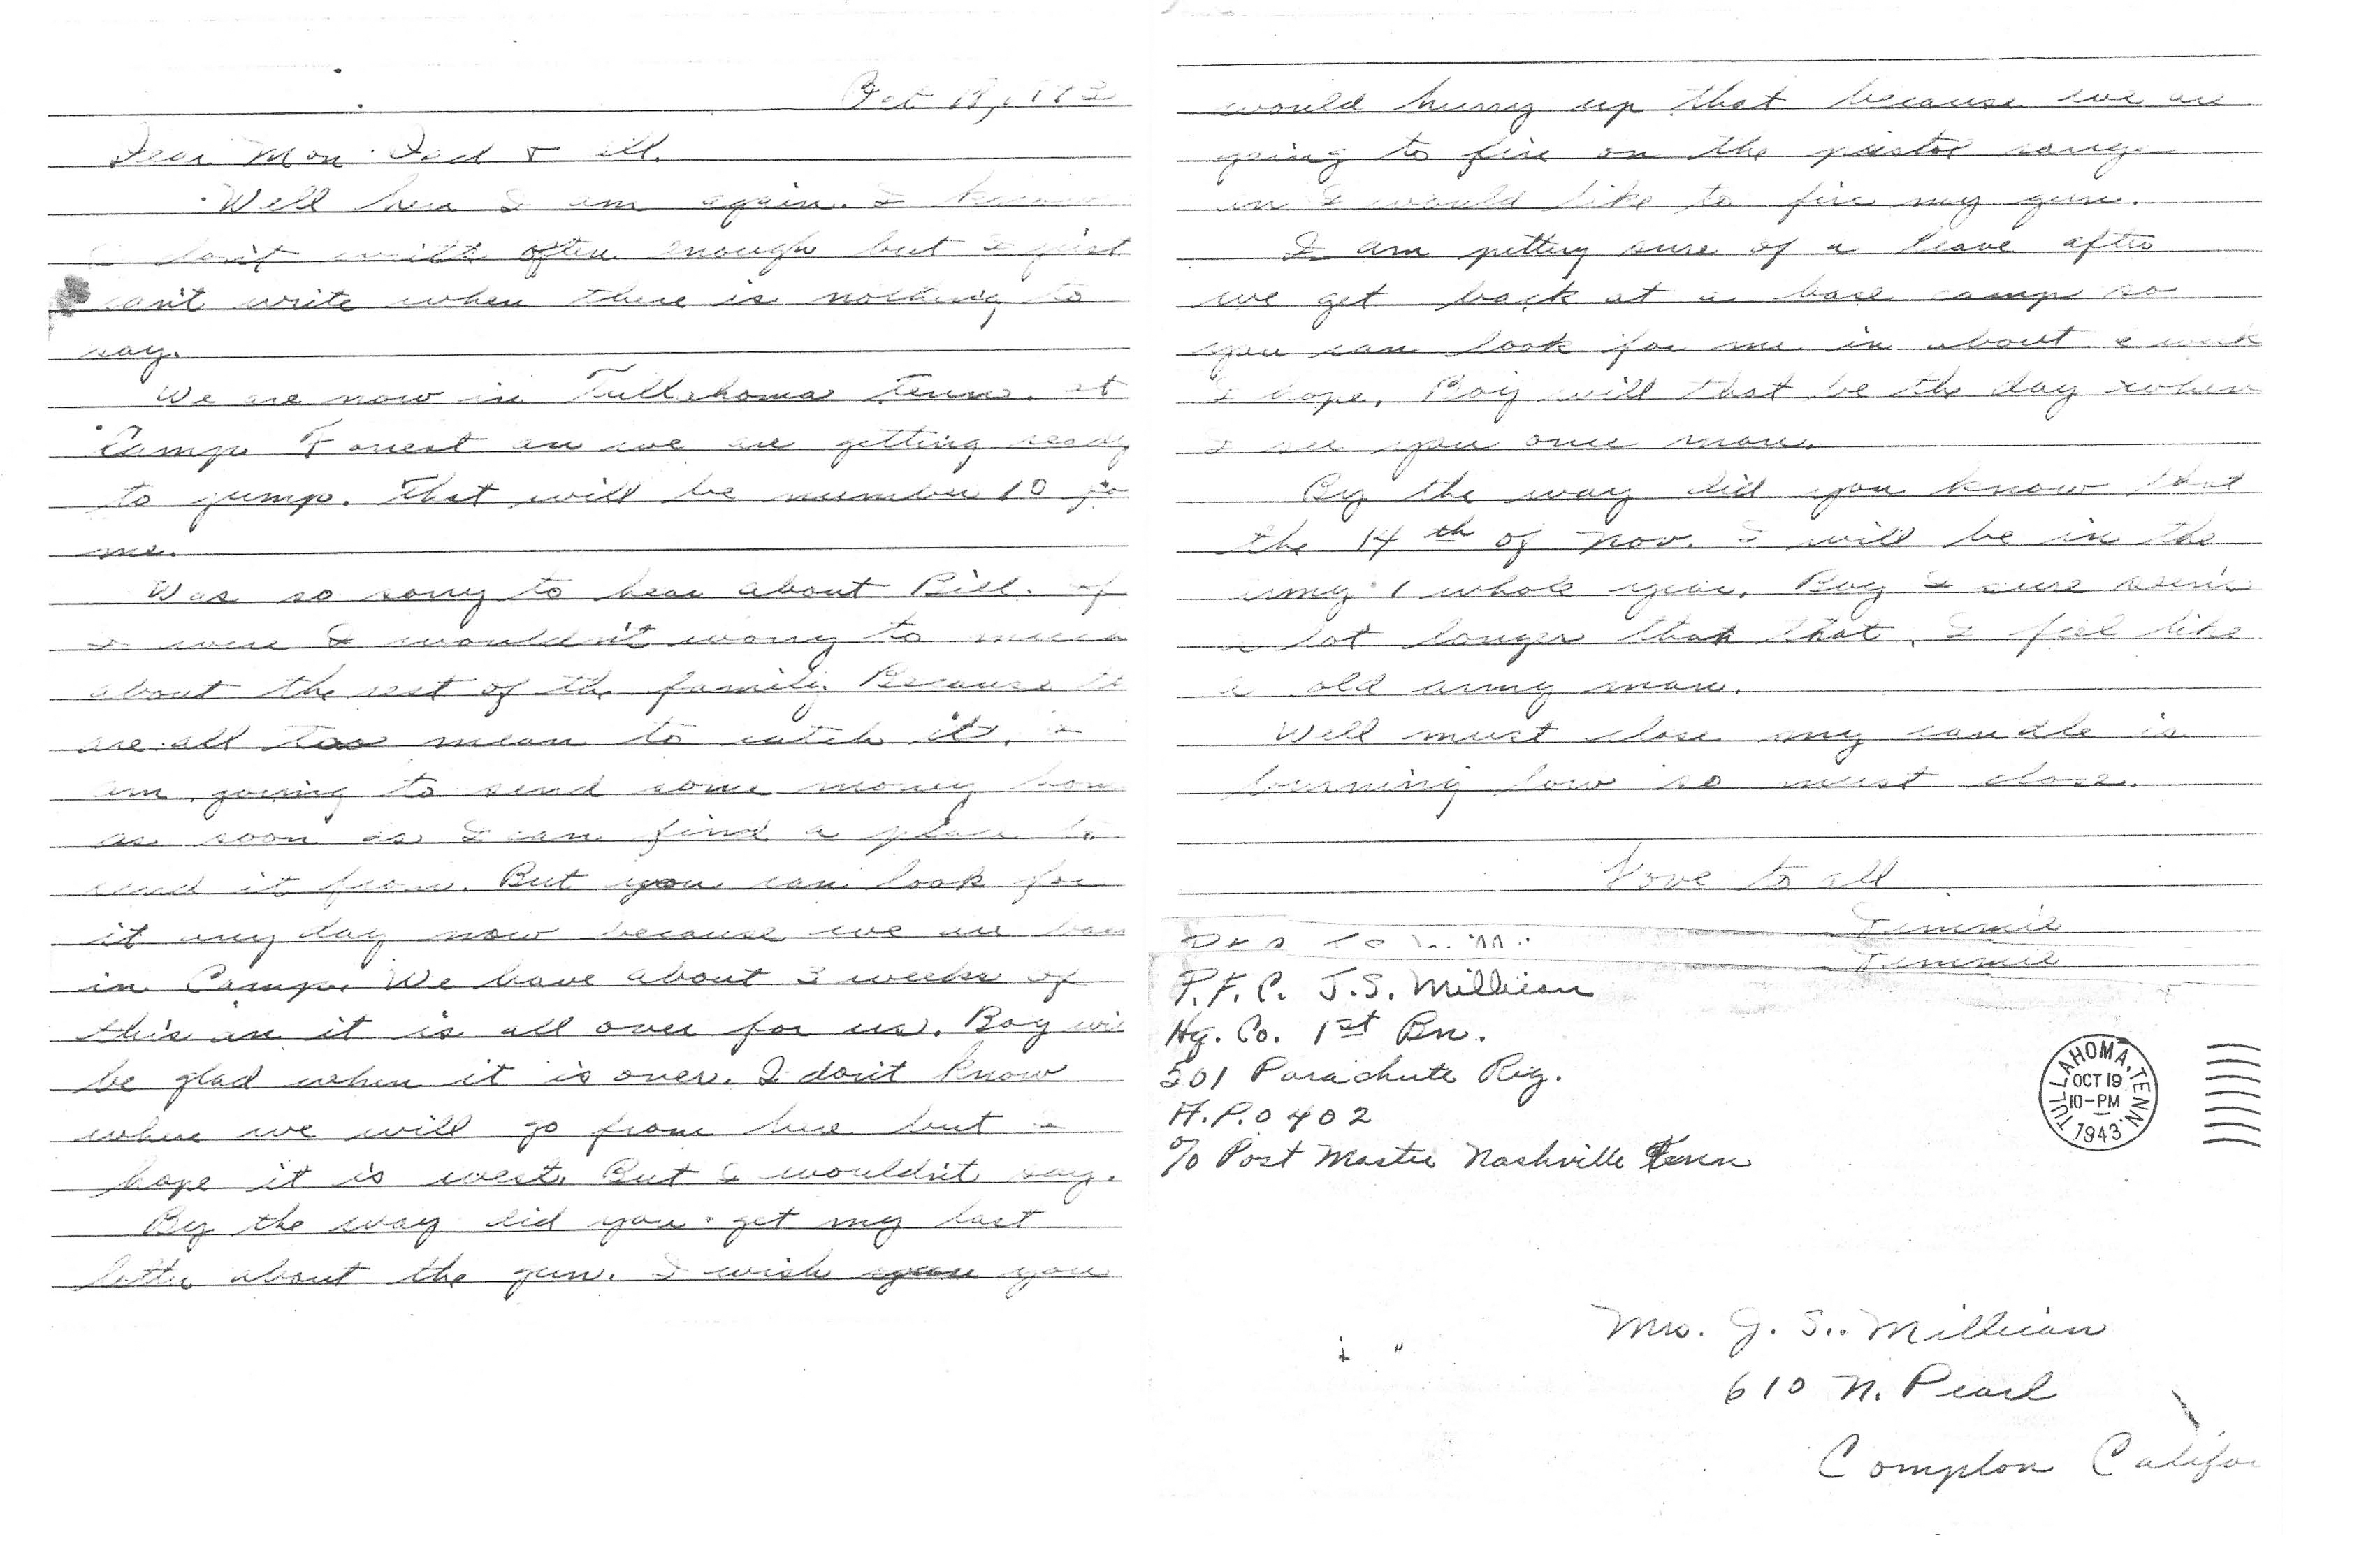 Oct 19, 1943
Dear Mom Dad & all.
Well here I am again. I know
I don't write often enough but I just
can't write when there is nothing to
say.
We are now in Tullahoma Tenn. at
Camp Forest an we are getting ready
to jump. That will be number 10 for
me.
Was so sorry to hear about Bill. If
I were I wouldn't worry to much
about the rest of the family. Because
are all too mean to catch it. I
am going to send some money hom
as soon as I can find a place to
send it from. But you can look for
it any day now because we are
in Camp. We have about 3 weeks of
this an it is all over for us. Boy wi
be glad when it is over. I don't know
where we will go from here but I
hope it is west. But I wouldn't say.
By the way did you get my last
letter about the gun. I wish you you
would hurry up that because we are
going to fire on the pistol range
an I would like to fire my gun.
I am pretty sure of a leave after
we get back at a base camp so
you can look for me in about a week
I hope. Boy will that be the day when
I see you once more.
By the way did you know that
the 14th of Nov. I will be in the
army 1 whole year. Boy I sure
a lot longer than that. I feel like
a old army man.
Well must close my candle is
burning low so must close.
Love to all
Jimmie
Jimmie
P.F.C. J.S. Millican
Hq. Co. 1st Bn.
501 Parachute Reg.
A.P.O 402
c/o Post Master Nashville Tenn
TULLAHOMA, TENN.
OCT 19
10-PM
1943
Mrs. J. S. Millican
610 N. Pearl
Compton Califor